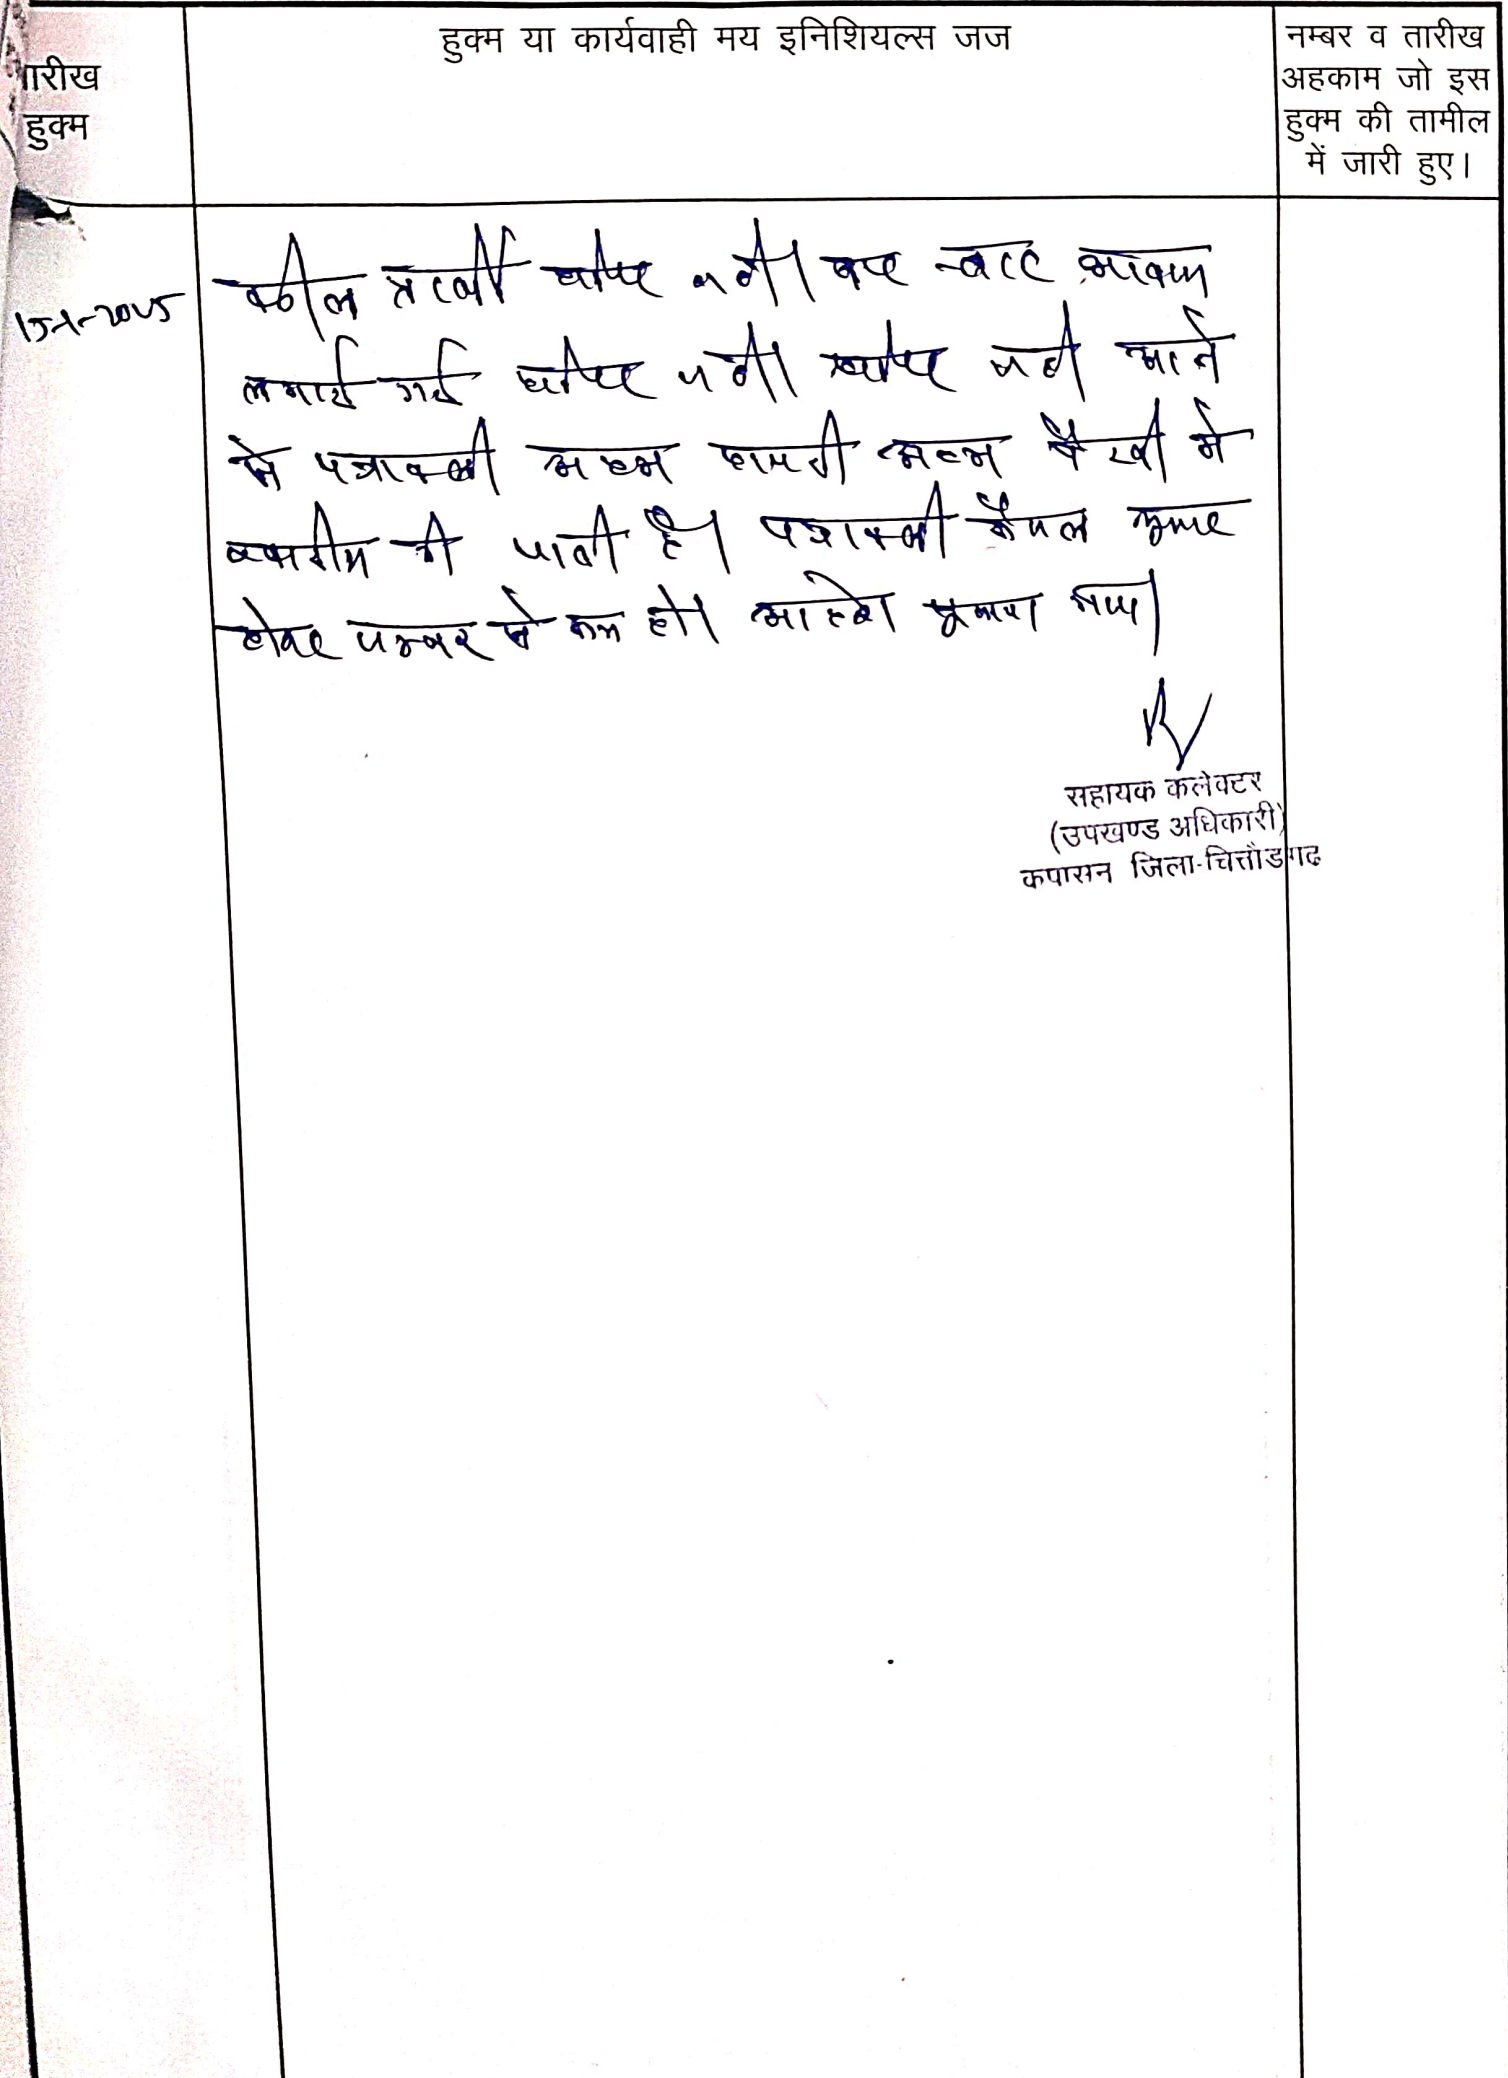 हुक्म या कार्यवाही मय इनिशियल्स जज
नम्बर व तारीख
अहकाम जो इस
हुक्म की तामील
में जारी हुए।
ारीख
हुक्म
वकील प्रार्थी हाजिर नहीं। बार बार आवाज
लगाई गई हाजिर नहीं। हाजिर नहीं आने
से पत्रावली अदम हाजरी अदम पैरवी में
खारीज की जाती है। पत्रावली फैसल शुमार
होकर नम्बर से कम हो। आदेश सुनाया गया।
सहायक कलेक्टर
(उपखण्ड अधिकारी)
कपासन जिला-चित्तौडगढ